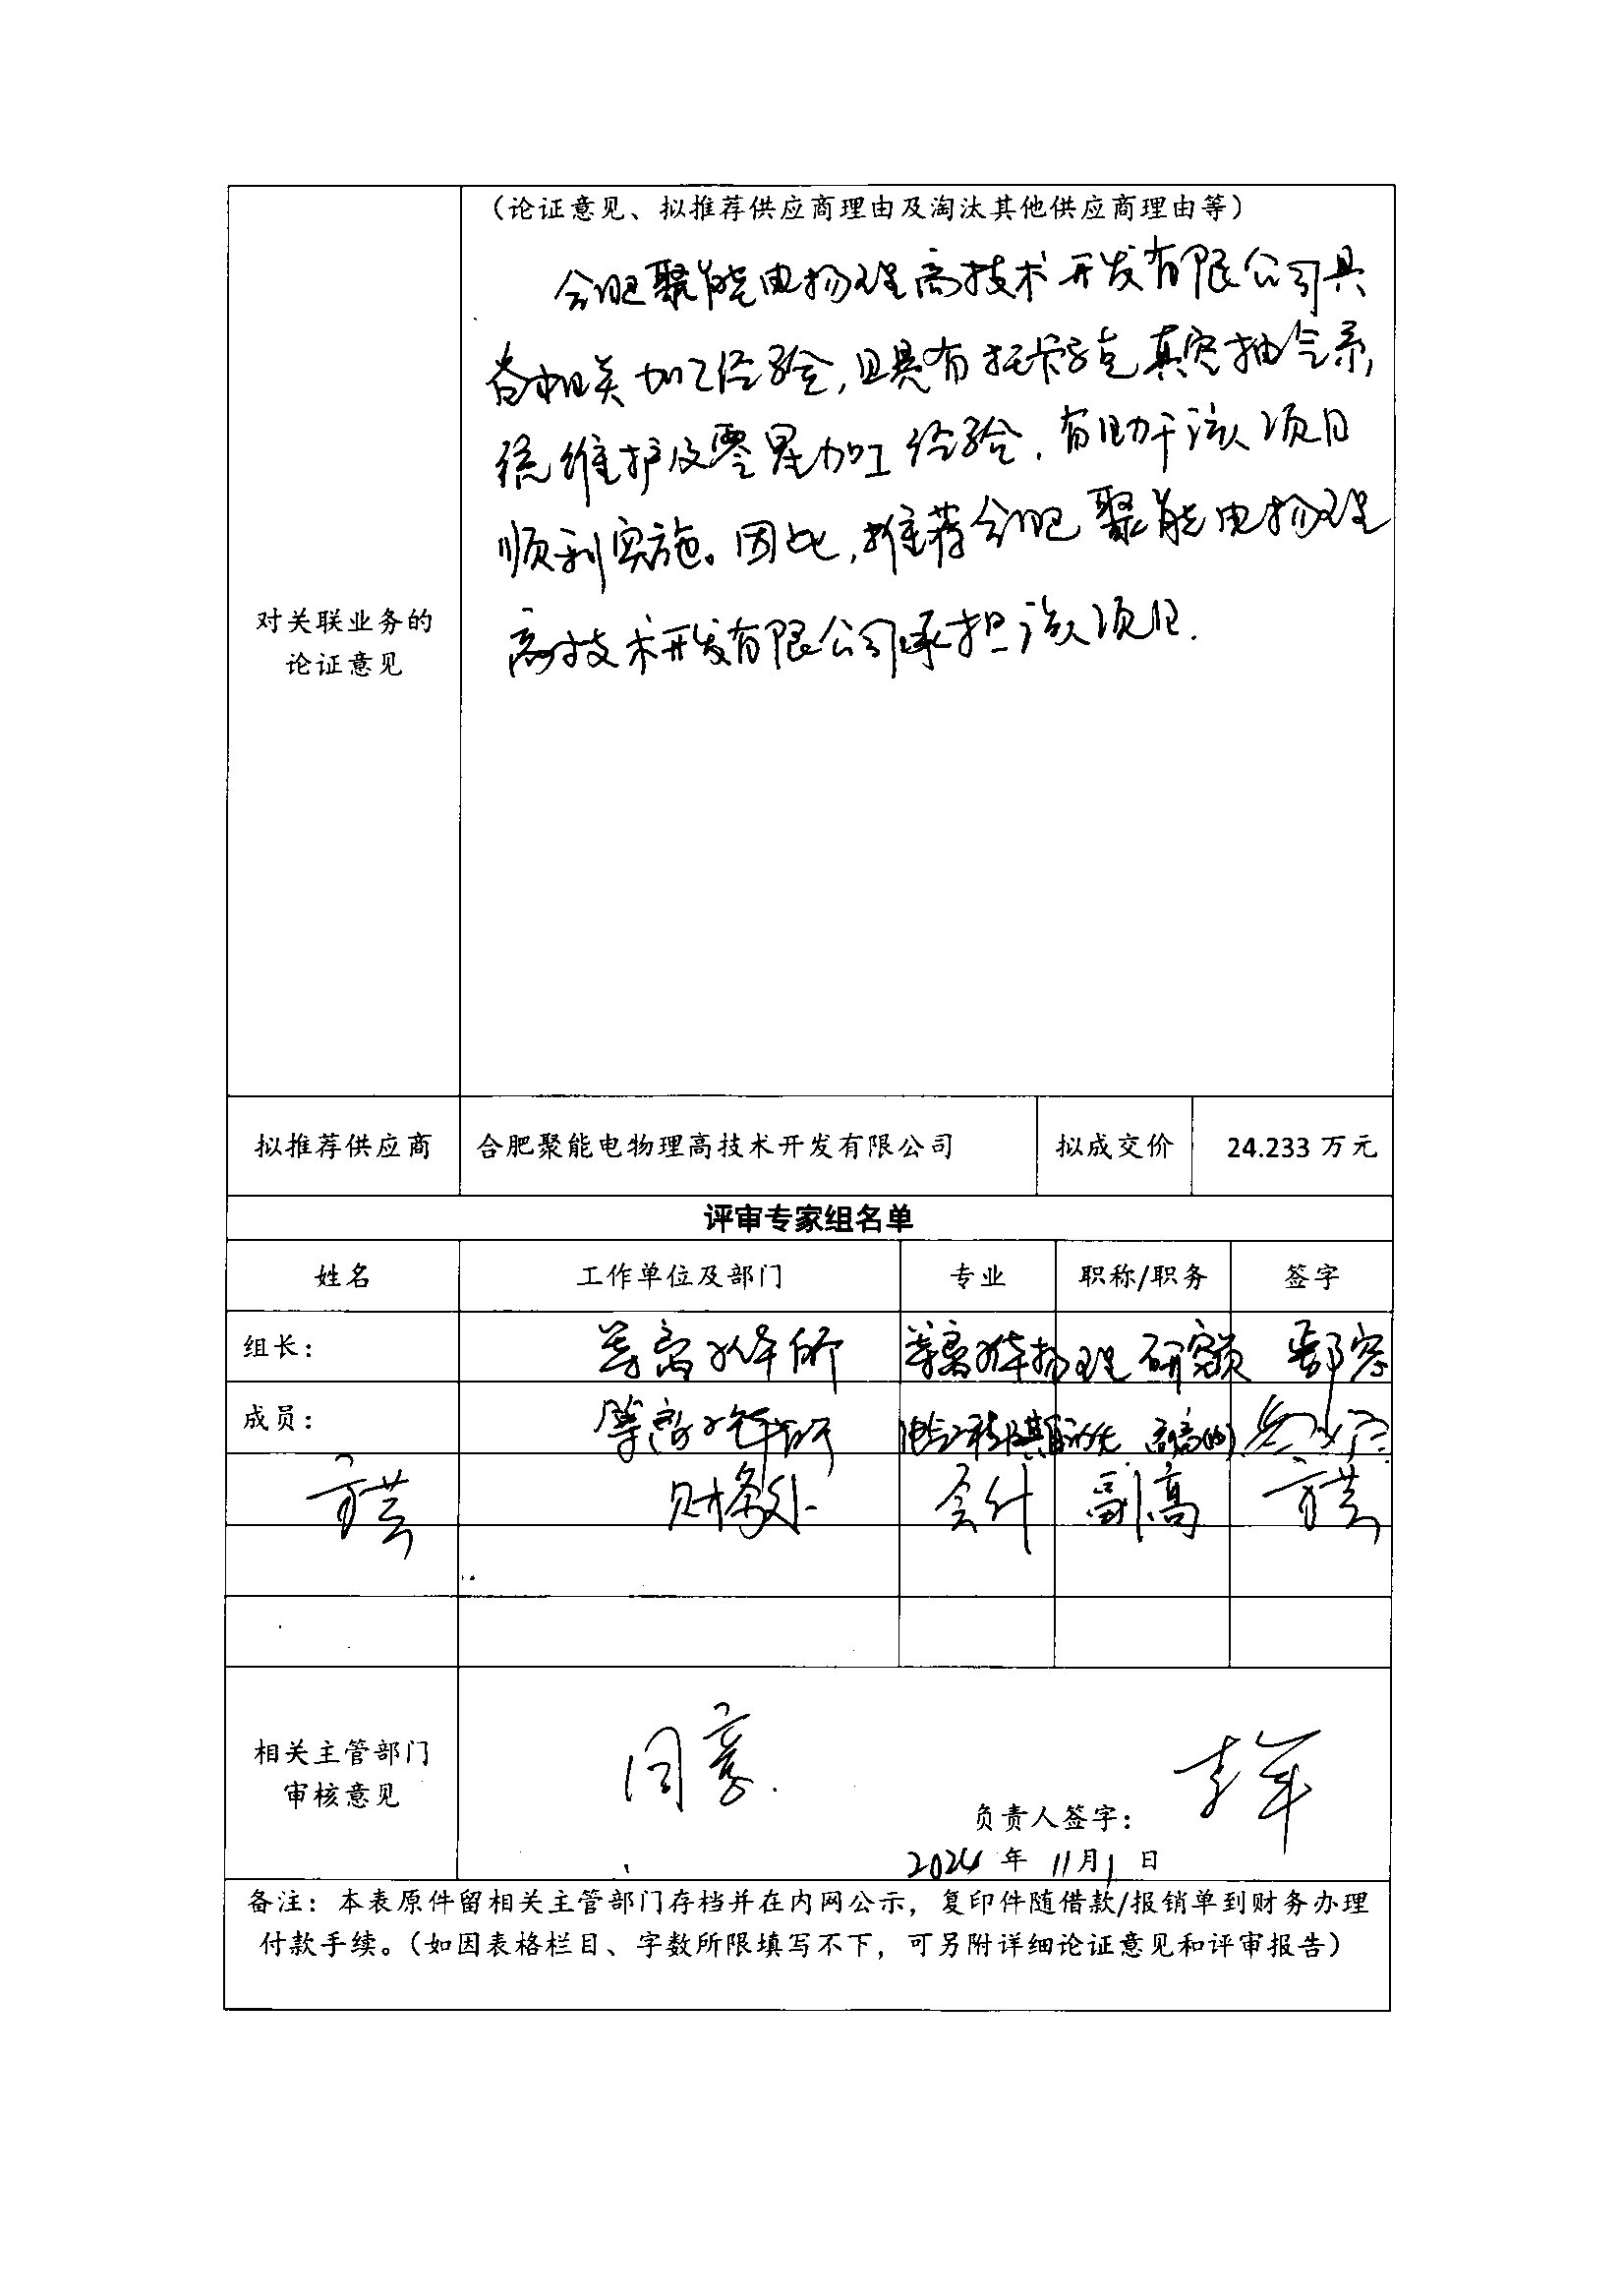 （论证意见、拟推荐供应商理由及淘汰其他供应商理由等）
合肥聚能电物理高技术开发有限公司具
备相关加工经验，且具有托卡马克真空抽气系
统维护及零星加工经验，有助于该项目
顺利实施。因此，推荐合肥聚能电物理
高技术开发有限公司承担该项目.
对关联业务的
论证意见
拟推荐供应商 合肥聚能电物理高技术开发有限公司 拟成交价 24.233 万元
评审专家组名单
姓名 工作单位及部门 专业 职称/职务 签字
组长： 等离子体所 等离子体物理 研究员 鄢容
成员： 等离子体所
方芸 财务处 会计 副高 方芸
相关主管部门
审核意见
同意.
负责人签字：
2024 年 11月1日
备注：本表原件留相关主管部门存档并在内网公示，复印件随借款/报销单到财务办理
付款手续。（如因表格栏目、字数所限填写不下，可另附详细论证意见和评审报告）